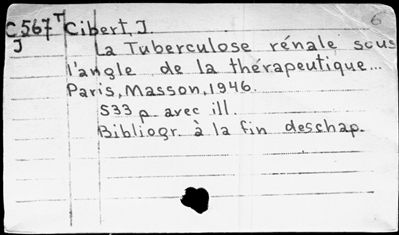 6
C567T Cibert, J.
J La Tuberculose rénale sous
l'angle de la thérapeutique...
Paris, Masson, 1946.
533 p. avec ill.
Bibliogr. à la fin des chap.